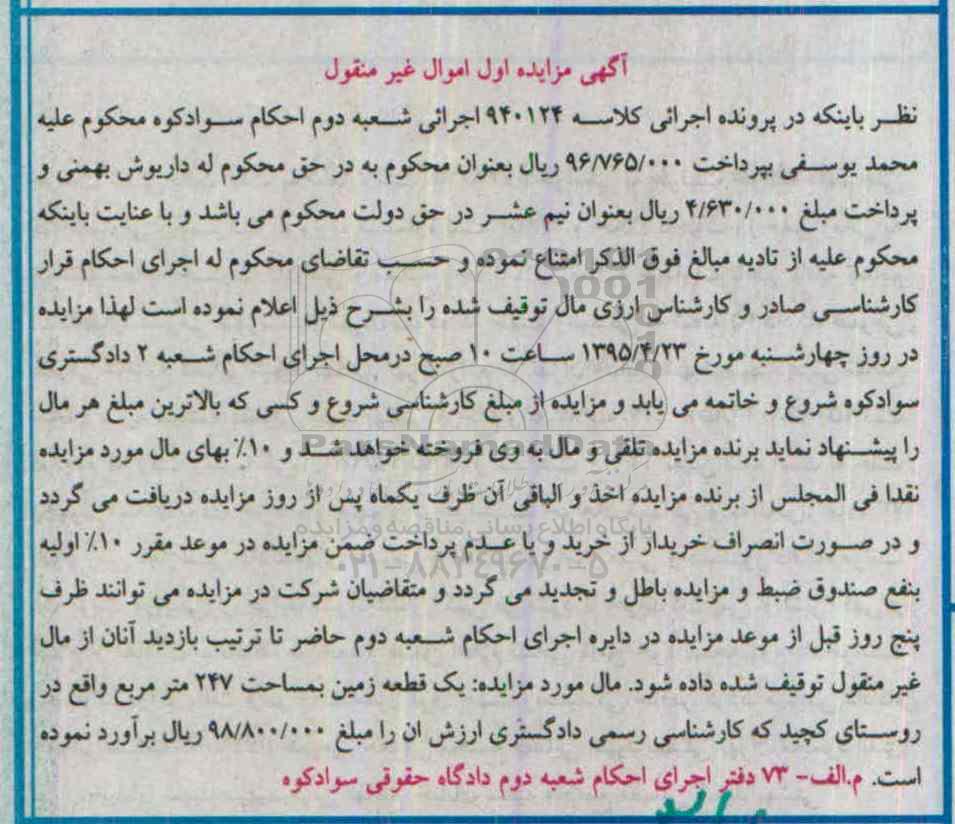 آگهی مزایده اول اموال غیر منقول
نظر باینکه در پرونده اجرائی کلاسه ۹۴۰۱۲۴ اجرائی شعبه دوم احکام سوادکوه محکوم علیه
محمد یوسفی بپرداخت ۹۶/۷۶۵/۰۰۰ ریال بعنوان محکوم به در حق محکوم له داریوش بهمنی و
پرداخت مبلغ ۴/۶۳۰/۰۰۰ ریال بعنوان نیم عشر در حق دولت محکوم می باشد و با عنایت باینکه
محکوم علیه از تادیه مبالغ فوق الذکر امتناع نموده و حسب تقاضای محکوم له اجرای احکام قرار
کارشناسی صادر و کارشناس ارزی مال توقیف شده را بشرح ذیل اعلام نموده است لهذا مزایده
در روز چهارشنبه مورخ ۱۳۹۵/۴/۲۳ ساعت ۱۰ صبح درمحل اجرای احکام شعبه ۲ دادگستری
سوادکوه شروع و خاتمه می یابد و مزایده از مبلغ کارشناسی شروع و کسی که بالاترین مبلغ هر مال
را پیشنهاد نماید برنده مزایده تلقی و مال به وی فروخته خواهد شد و ۱۰٪ بهای مال مورد مزایده
نقدا فی المجلس از برنده مزایده اخذ و الباقی آن ظرف یکماه پس از روز مزایده دریافت می گردد
و در صورت انصراف خریدار از خرید و یا عدم پرداخت ضمن مزایده در موعد مقرر ۱۰٪ اولیه
بنفع صندوق ضبط و مزایده باطل و تجدید می گردد و متقاضیان شرکت در مزایده می توانند ظرف
پنج روز قبل از موعد مزایده در دایره اجرای احکام شعبه دوم حاضر تا ترتیب بازدید آنان از مال
غیر منقول توقیف شده داده شود. مال مورد مزایده: یک قطعه زمین بمساحت ۲۴۷ متر مربع واقع در
روستای کچید که کارشناسی رسمی دادگستری ارزش ان را مبلغ ۹۸/۸۰۰/۰۰۰ ریال برآورد نموده
است. م.الف- ۷۳ دفتر اجرای احکام شعبه دوم دادگاه حقوقی سوادکوه
ParsNamadData
پایگاه اطلاع رسانی مناقصه و مزایده
۰۲۱-۸۸۳۴۹۶۷۰-۵